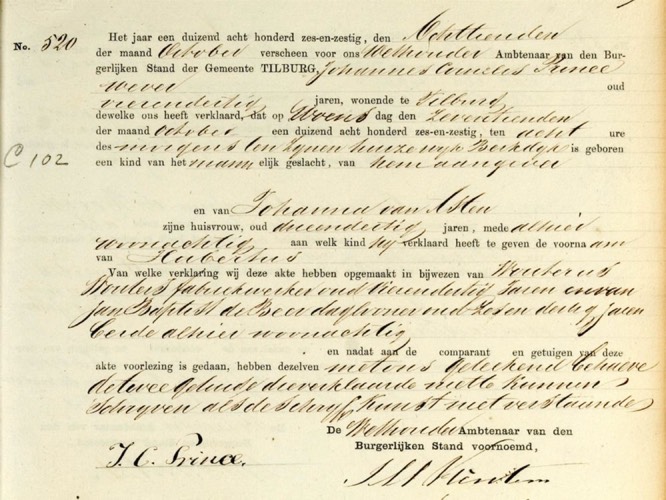 No. 520
Het jaar een duizend acht honderd zes-en-zestig, den Achttienden
der maand October verscheen voor ons Wethouder Ambtenaar van den Bur-
gerlijken Stand der Gemeente TILBURG, Johannes Cornelis Prince
wever oud
vierendertig jaren, wonende te Tilburg
dewelke ons heeft verklaard, dat op Woens dag den Zeventienden
der maand October een duizend acht honderd zes-en-zestig, ten acht ure
C 102
des morgens ten zynen huize wyk Berkdyk is geboren
een kind van het mann elijk geslacht, van hem aangever
en van Johanna van Asten
zijne huisvrouw, oud drieendertig jaren, mede alhier
woonachtig aan welk kind hy verklaard heeft te geven de voorna am
van Hubertus
Van welke verklaring wij deze akte hebben opgemaakt in bijwezen van Wouterus
Wouters fabriekwerker oud vierendertig Jaren en van
Jan Baptist de Beer daglooner oud Zes en dertig jaren
beide alhier woonachtig
en nadat aan de comparant en getuigen van deze
akte voorlezing is gedaan, hebben dezelven met ons geteekend behalve
de twee getuigen die verklaarde niet te kunnen
Schryven als de Schryf Kunst niet verstaande
De Wethouder Ambtenaar van den
Burgerlijken Stand voornoemd,
J. C. Prince.